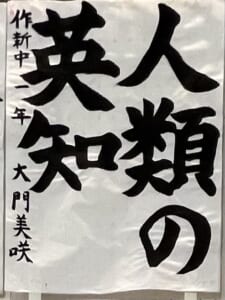 人類の
英知
作新中一年 大門美咲